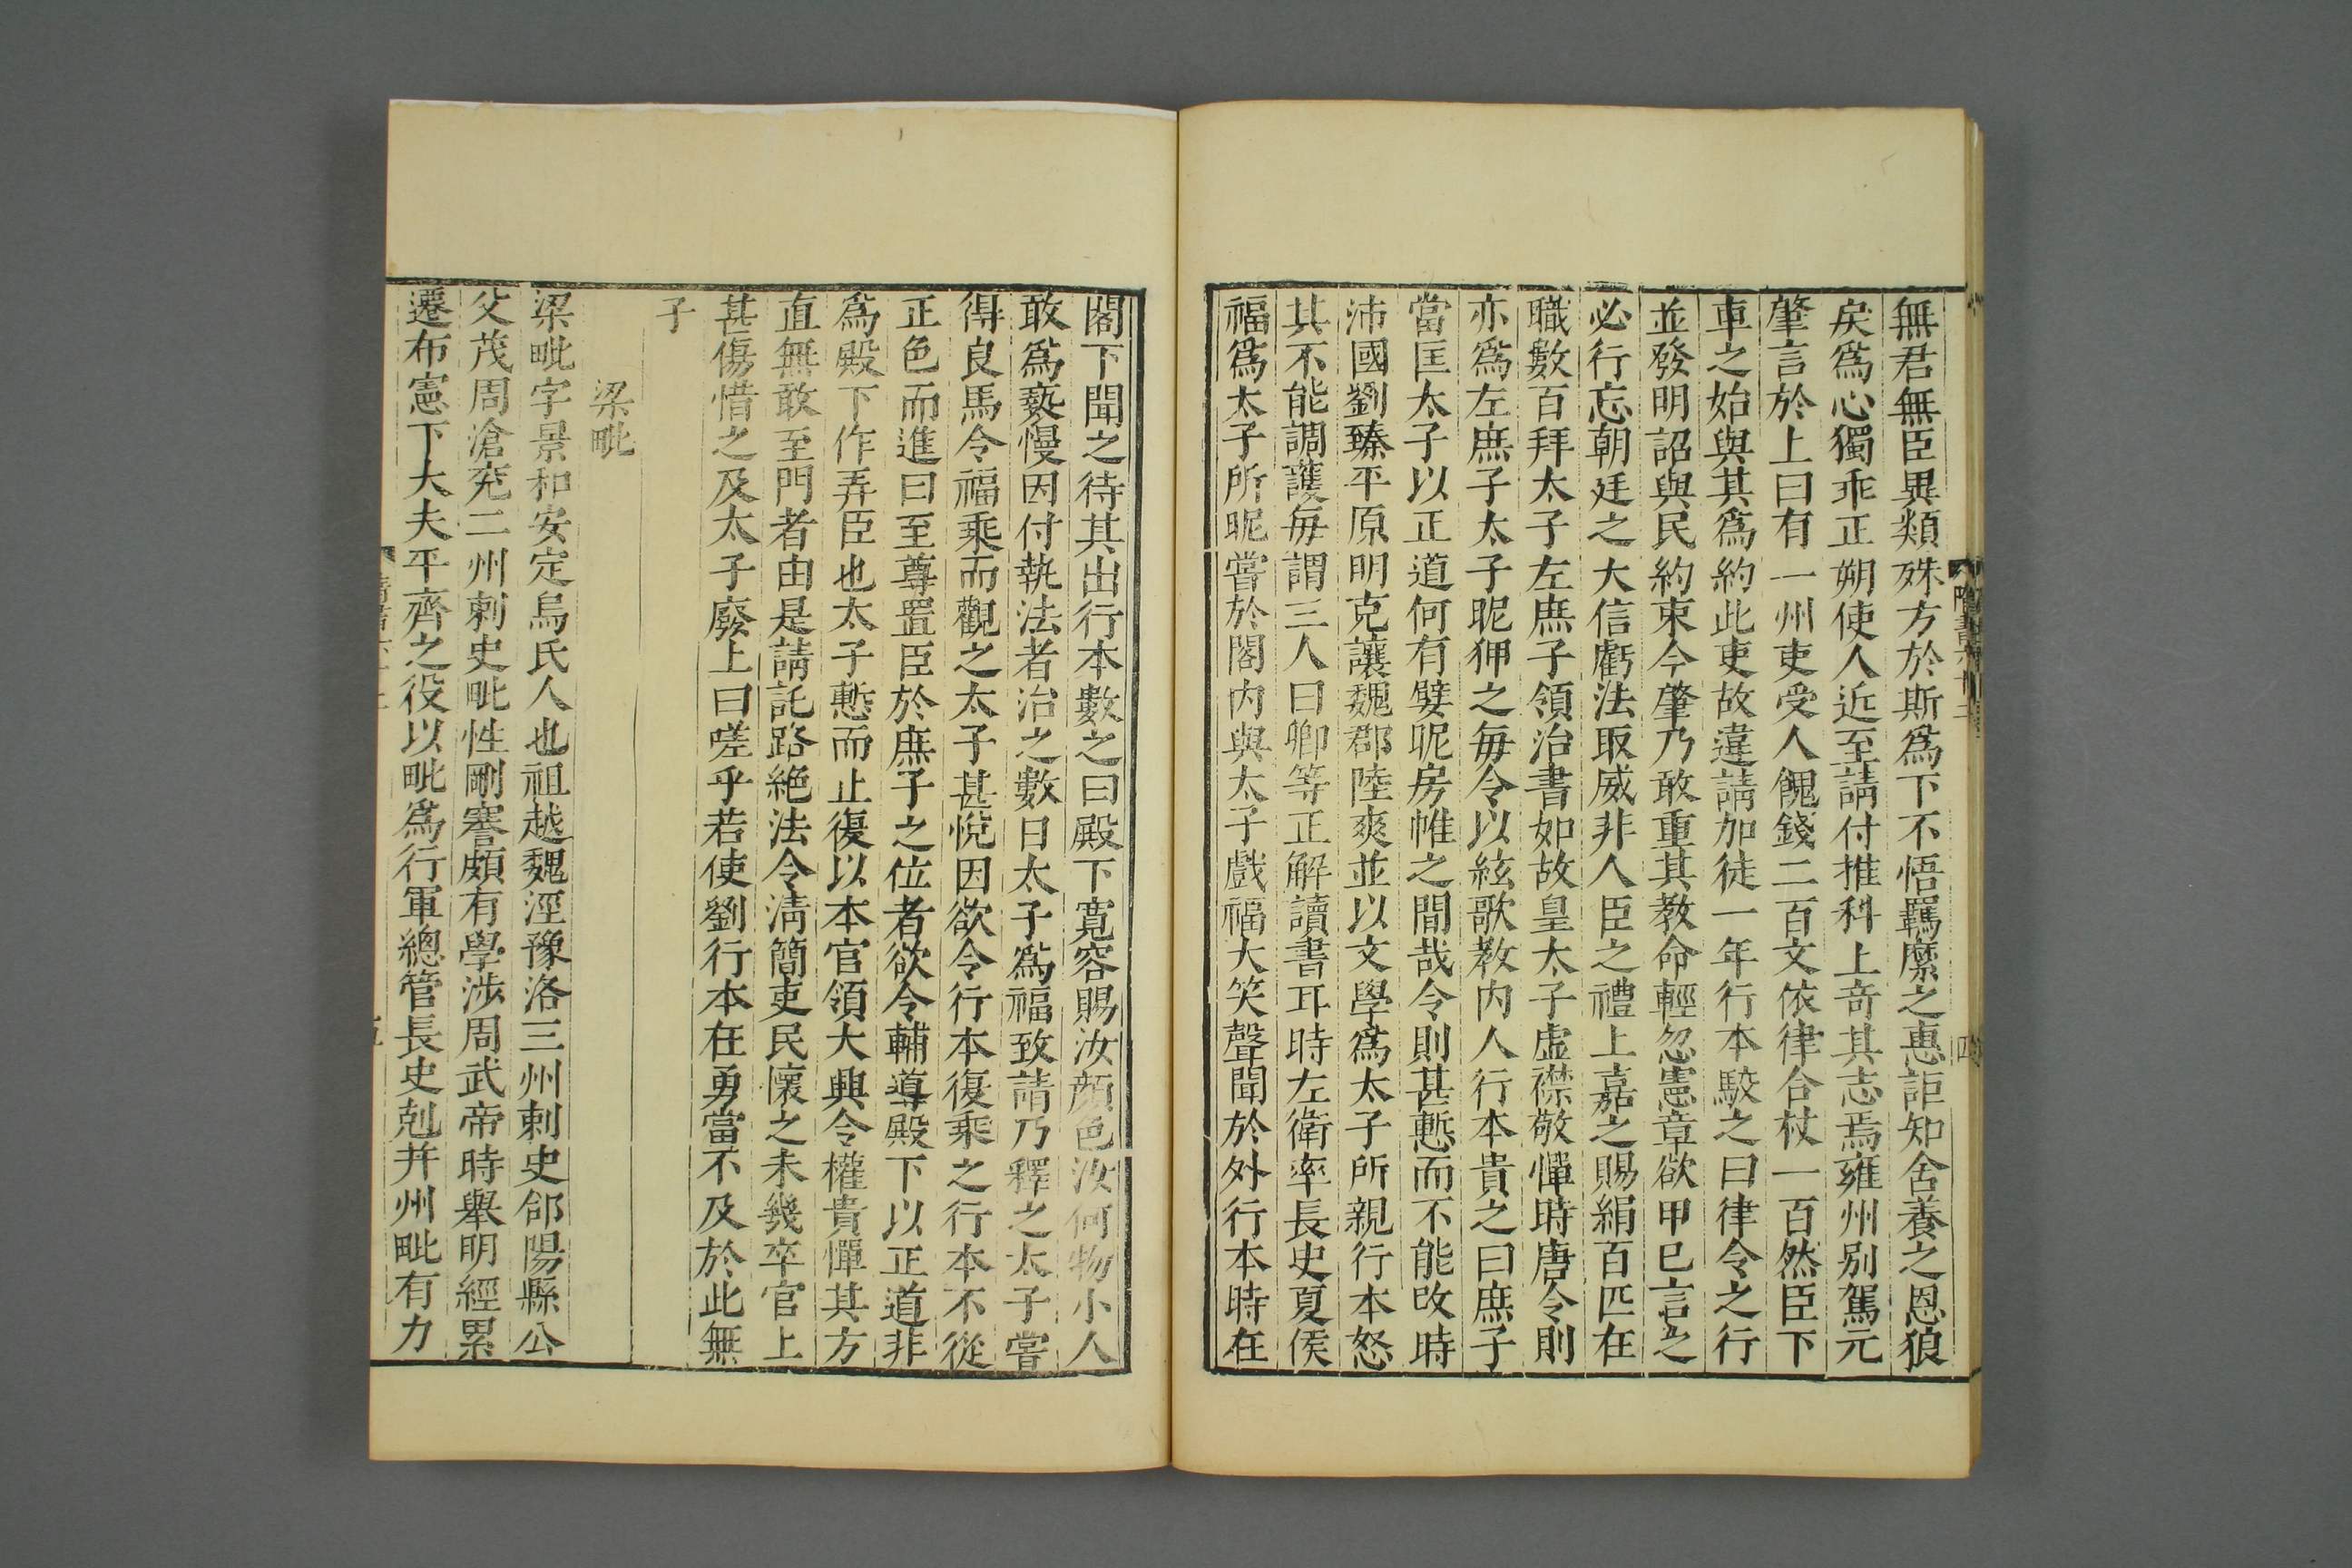 無君無臣異類殊方於斯爲下不悟羈縻之惠詎知含養之恩狼
戾爲心獨乖正朔使人近至請付推科上奇其志焉雍州别駕元
肇言於上曰有一州吏受人餽錢二百文依律合杖一百然臣下
車之始與其爲約此吏故違請加徒一年行本駮之曰律令之行
並發明詔與民約束今肇乃敢重其教命輕忽憲章欲申己言之
必行忘朝廷之大信虧法取威非人臣之禮上嘉之賜絹百匹在
職數百拜太子左庶子領治書如故皇太子虛襟敬憚時唐令則
亦爲左庶子太子昵狎之每令以絃歌教内人行本責之曰庶子
當匡太子以正道何有嬖昵房帷之間哉令則甚慙而不能改時
沛國劉臻平原明克讓魏郡陸爽並以文學爲太子所親行本怒
其不能調護每謂三人曰卿等正解讀書耳時左衛率長史夏侯
福爲太子所昵嘗於閤内與太子戲福大笑聲聞於外行本時在
閤下聞之待其出行本數之曰殿下寛容賜汝顔色汝何物小人
敢爲䙝慢因付執法者治之數日太子爲福致請乃釋之太子嘗
得良馬令福乘而觀之太子甚悅因欲令行本復乘之行本不從
正色而進曰至尊置臣於庶子之位者欲令輔導殿下以正道非
爲殿下作弄臣也太子慙而止復以本官領大興令權貴憚其方
直無敢至門者由是請託路絶法令淸簡吏民懷之未幾卒官上
甚傷惜之及太子廢上曰嗟乎若使劉行本在勇當不及於此無
子
梁毗
梁毗字景和安定烏氏人也祖越魏涇豫洛三州刺史郃陽縣公
父茂周滄兗二州刺史毗性剛謇頗有學涉周武帝時舉明經累
遷布憲下大夫平齊之役以毗爲行軍總管長史剋并州毗有力